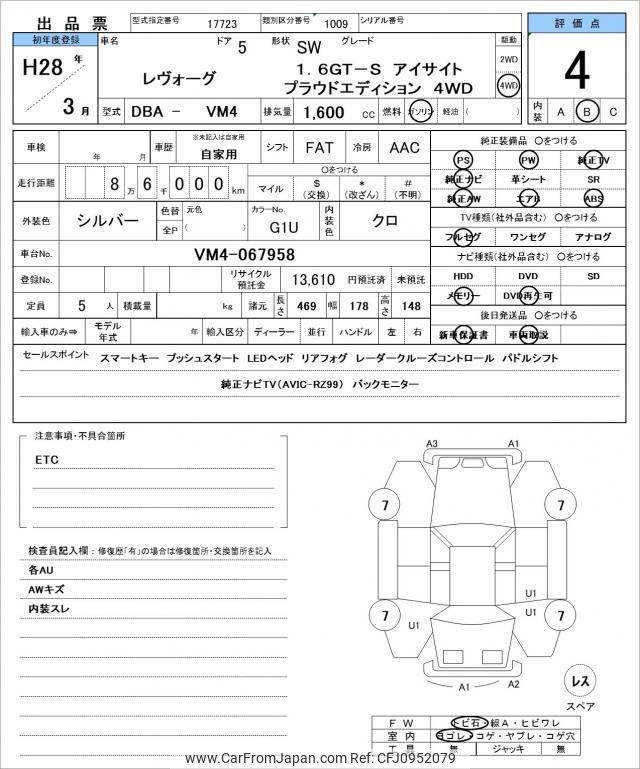 出品票 型式指定番号 17723 類別区分番号 1009 シリアル番号
評価点
初年度登録 車名 ドア 5 形状 SW グレード 駆動
H28 年
3 月
レヴォーグ
1.6GT-S アイサイト
プラウドエディション 4WD
2WD
4WD
4
型式 DBA - VM4 排気量 1,600 cc 燃料 ガソリン 軽油 ( )
内装 A B C
車検 年 月 車歴 ※未記入は自家用 自家用 シフト FAT 冷房 AAC
走行距離 8 万 6 千 0 0 0 km
○をつける
マイル $ (交換) * (改ざん) # (不明)
外装色 シルバー 色替 全P 元色 ( ) カラーNo. G1U 内装色 クロ
車台No. VM4-067958
登録No. リサイクル預託金 13,610 円預託済 未預託
定員 5 人 積載量 kg 諸元 長さ 469 幅 178 高さ 148
輸入車のみ⇒ モデル年式 年 輸入区分 ディーラー 並行 ハンドル 左 右
純正装備品 ○をつける
PS PW 純正TV
純正ナビ 革シート SR
純正AW エアB ABS
TV種類(社外品含む) ○をつける
フルセグ ワンセグ アナログ
ナビ種類(社外品含む) ○をつける
HDD DVD SD
メモリー DVD再生可
後日発送品 ○をつける
新車保証書 車両取説
セールスポイント スマートキー プッシュスタート LEDヘッド リアフォグ レーダークルーズコントロール パドルシフト
純正ナビTV(AVIC-RZ99) バックモニター
注意事項・不具合箇所
ETC
検査員記入欄:修復歴「有」の場合は修復箇所・交換箇所を記入
各AU
AWキズ
内装スレ
A3 A1
7 7
U1
7 U1 7
U1
A1 A2
レス
スペア
FW トビ石・線A・ヒビワレ
室内 ヨゴレ・コゲ・ヤブレ・コゲ穴
工具 無 ジャッキ 無
www.CarFromJapan.com Ref:CFJ0952079